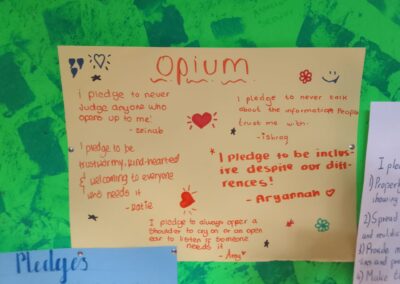 Opium
i pledge to never
Judge anyone who
opens up to me!
- zeinab
i pledge to never talk
about the information people
trust me with.
- ishraq
i pledge to be
trustworthy, kind-hearted
& welcoming to everyone
who needs it
I pledge to be inclus-
ive despite our diff-
rences!
- Aryannah
I pledge to always offer a
shoulder to cry on or an open
ear to listen if someone
needs it
- Amy
Pledges
I ple
1) Property
showing
2) Spread
3) Provide
4) Make t